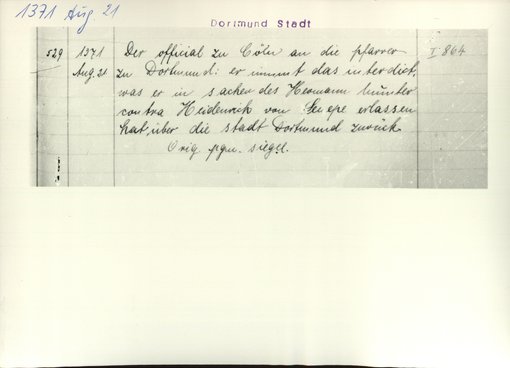 1371 Aug. 21
Dortmund Stadt
529 1371 Der official zu Cöln an die pfarrer I 864
Aug. 21 zu Dortmund: er nimmt das interdict,
was er in sachen des Hermann
contra Heidenrick von erlassen
hat, über die stadt Dortmund zurück
Orig. pgm. siegel.